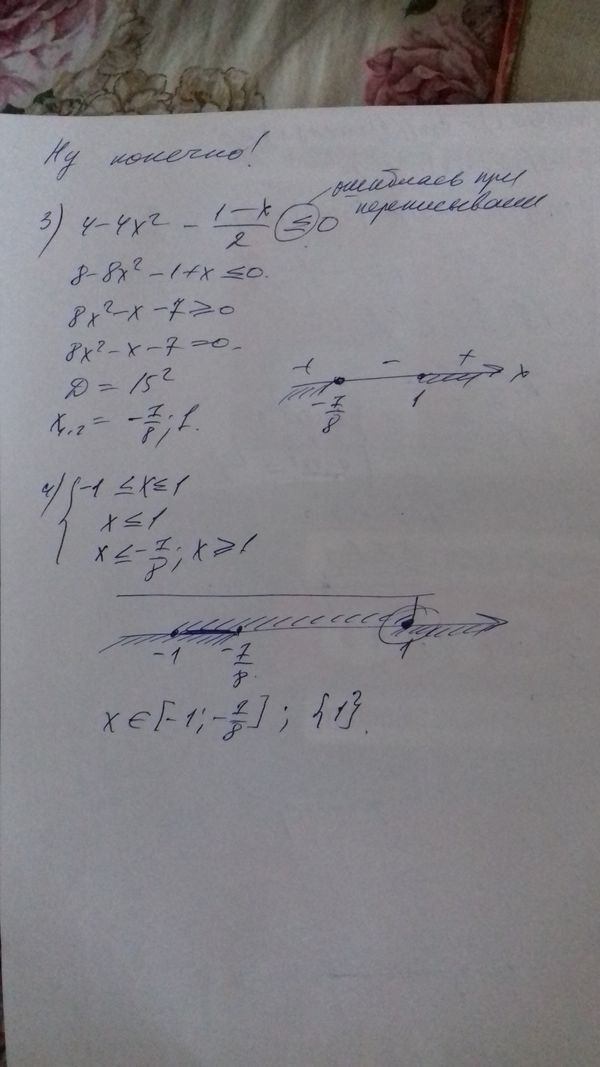 Ну конечно!
ошиблась при
переписывании
3) 4-4x² - (1-x)/2 ≤ 0
8-8x²-1+x ≤ 0.
8x²-x-7 ≥ 0
8x²-x-7 = 0.
D = 15²
x₁,₂ = -7/8; 1.
+ - + x
-7/8 1
4) { -1 ≤ x ≤ 1
x ≤ 1
x ≤ -7/8; x ≥ 1
-1 -7/8 1
x ∈ [-1; -7/8]; {1}.